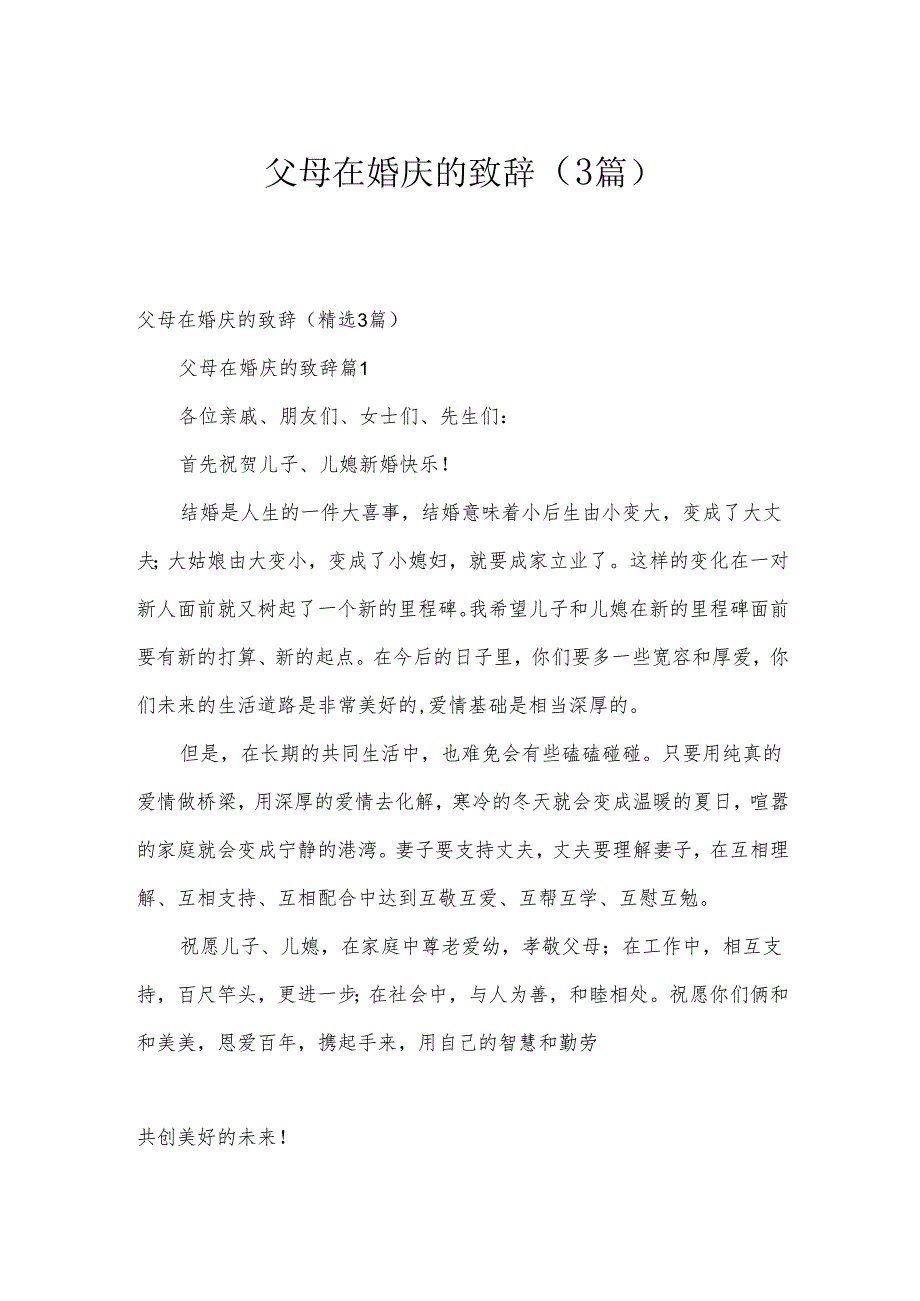 父母在婚庆的致辞（3篇）
父母在婚庆的致辞（精选3篇）
父母在婚庆的致辞篇1
各位亲戚、朋友们、女士们、先生们：
首先祝贺儿子、儿媳新婚快乐！
结婚是人生的一件大喜事，结婚意味着小后生由小变大，变成了大丈
夫；大姑娘由大变小，变成了小媳妇，就要成家立业了。这样的变化在一对
新人面前就又树起了一个新的里程碑。我希望儿子和儿媳在新的里程碑面前
要有新的打算、新的起点。在今后的日子里，你们要多一些宽容和厚爱，你
们未来的生活道路是非常美好的,爱情基础是相当深厚的。
但是，在长期的共同生活中，也难免会有些磕磕碰碰。只要用纯真的
爱情做桥梁，用深厚的爱情去化解，寒冷的冬天就会变成温暖的夏日，喧嚣
的家庭就会变成宁静的港湾。妻子要支持丈夫，丈夫要理解妻子，在互相理
解、互相支持、互相配合中达到互敬互爱、互帮互学、互慰互勉。
祝愿儿子、儿媳，在家庭中尊老爱幼，孝敬父母；在工作中，相互支
持，百尺竿头，更进一步；在社会中，与人为善，和睦相处。祝愿你们俩和
和美美，恩爱百年，携起手来，用自己的智慧和勤劳
共创美好的未来！